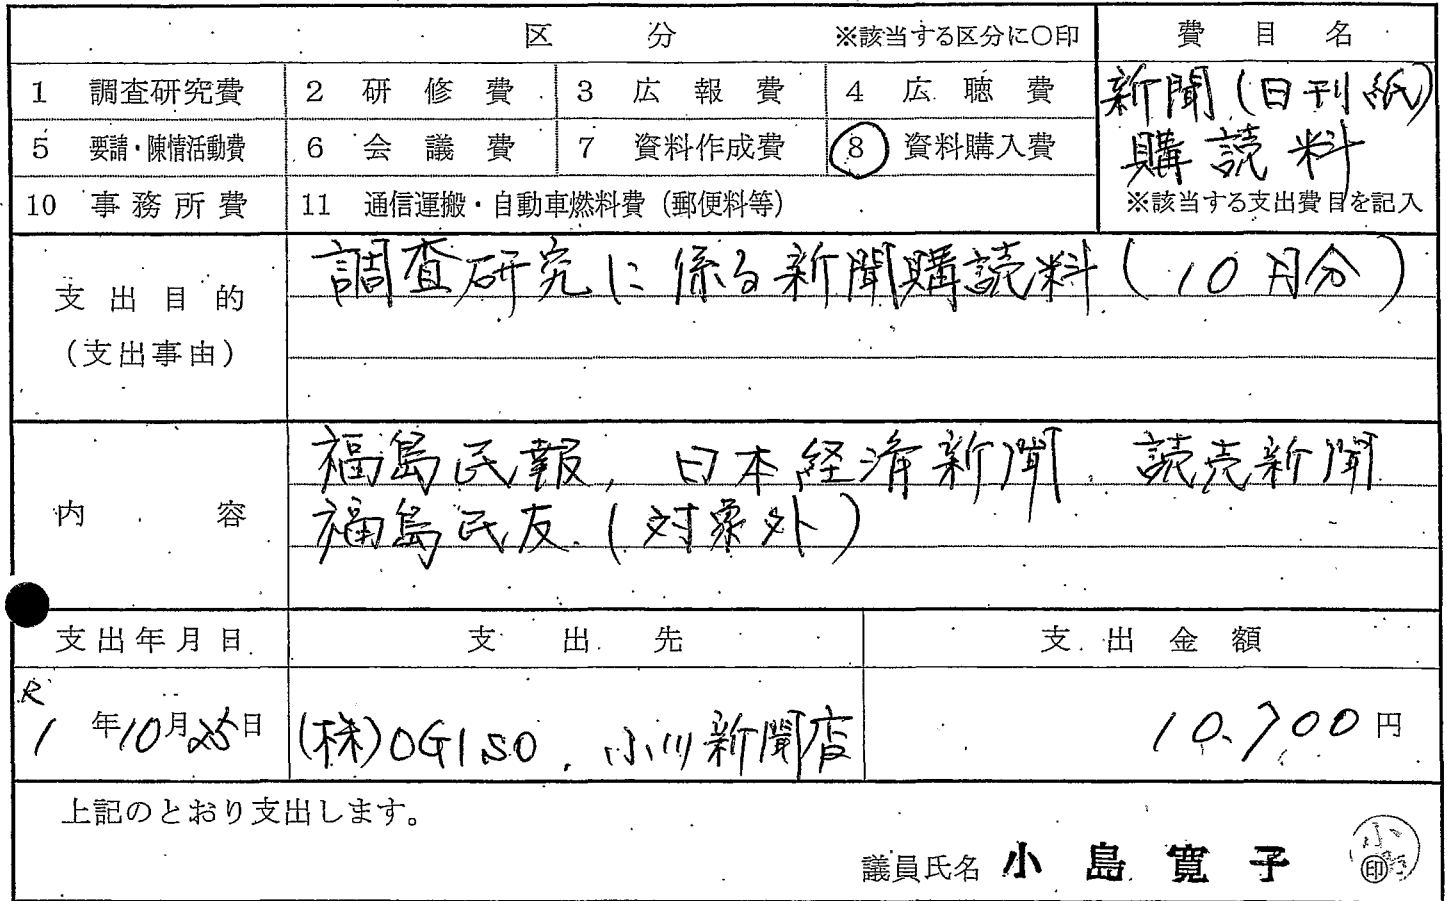 区分 ※該当する区分に〇印 費目名
1 調査研究費 2 研修費 3 広報費 4 広聴費 新聞(日刊紙)
5 要請・陳情活動費 6 会議費 7 資料作成費 8 資料購入費 購読料
10 事務所費 11 通信運搬・自動車燃料費(郵便料等) ※該当する支出費目を記入
支出目的 調査研究に係る新聞購読料(10月分)
(支出事由)
福島民報, 日本経済新聞、読売新聞
内容 福島民友(対象外)
支出年月日 支出先 支出金額
R1年10月25日 (株)OGISO、小川新聞店 10,700円
上記のとおり支出します。
議員氏名 小島寛子 印